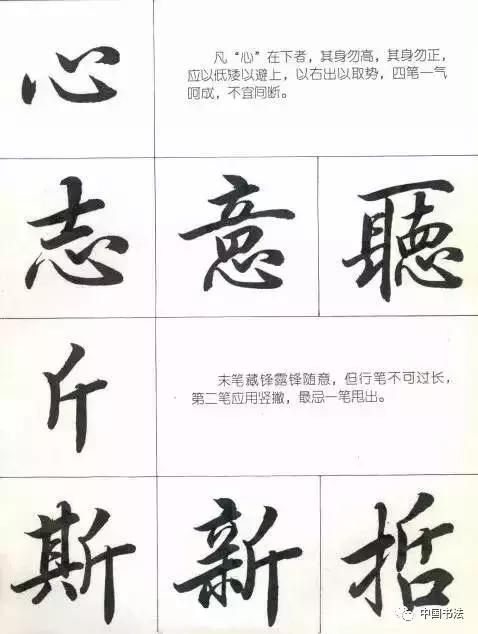 心
凡“心”在下者，其身勿高，其身勿正，
应以低矮以避上，以右出以取势，四笔一气
呵成，不宜间断。
志 意 聽
斤
末笔藏锋露锋随意，但行笔不可过长，
第二笔应用竖撇，最忌一笔甩出。
斯 新 哲
中国书法